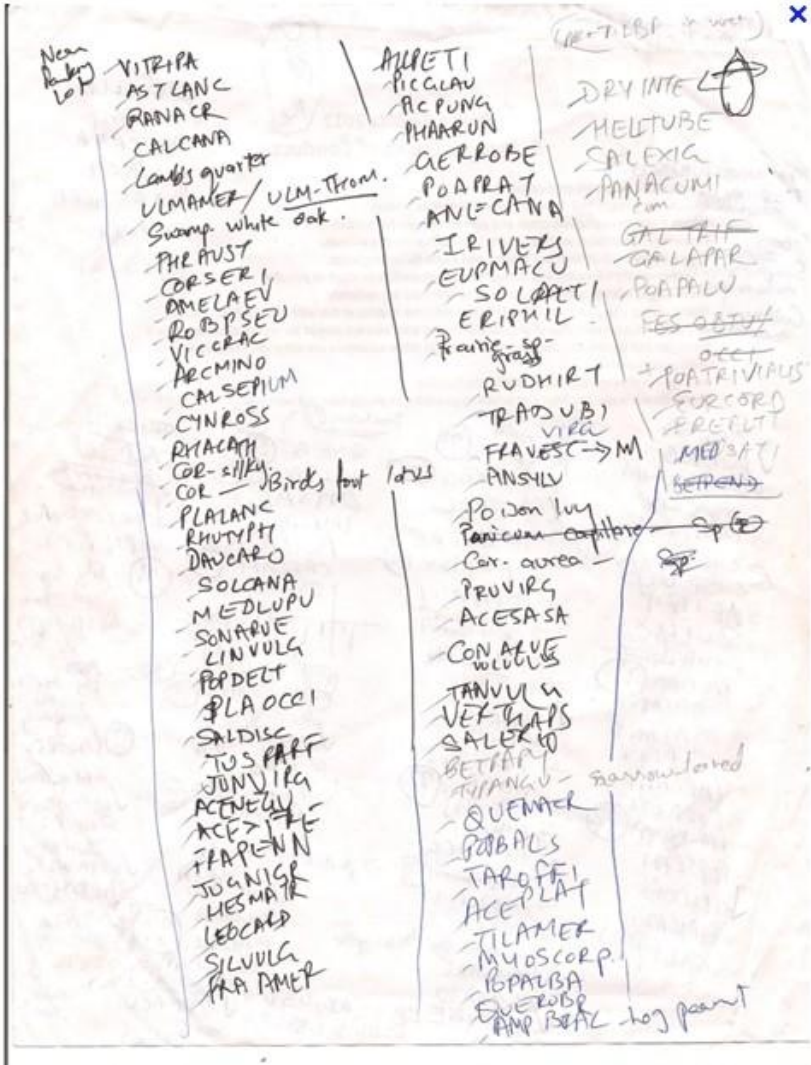 Near
Parking
Lot
VITRIPA
ASTLANC
RANACR
CALCANA
Lambs quarter
ULMAMER / ULM-Thom.
Swamp white oak.
PHRAUST
CORSERI
AMELAEV
ROBPSEU
VICCRAC
ARCMINO
CALSEPIUM
CYNROSS
RHACATH
COR-silky
COR — Birds foot lotus
PLALANC
RHUTYPH
DAUCARO
SOLCANA
MEDLUPU
SONARVE
LINVULG
POPDELT
PLAOCCI
SALDISC
TUSFARF
JUNVIRG
ACENEGU
FRAPENN
JUGNIGR
HESMATR
LEOCARD
SILVULG
FRAAMER
ALLPETI
PICGLAU
PICPUNG
PHAARUN
GERROBE
POAPRAT
ANECANA
IRIVERS
EUPMACU
ERIPHIL
Prairie-sp-
grass
RUDHIRT
TRADUBI
VIRG
FRAVESC → M
ANSYLV
Poison Ivy
Panicum capillare Sp
Cor. aurea — Sp
PRUVIRG
ACESASA
CONARVE
TANVULG
VERTHAPS
SALERIO
BETPAPY
TYPANGU - narrow leaved
QUEMACR
POPBALS
TAROFFI
ACEPLAT
TILAMER
MYOSCORP.
POPALBA
QUERUBR
AMPBRAC - hog peanut
DRYINTE
HELETUBE
SALEXIG
PANACUMI
GALTRIF
GALAPAR
POAPALU
FES OBTU/
OCCI
+POATRIVIALIS
MEDSATI
BETPEND